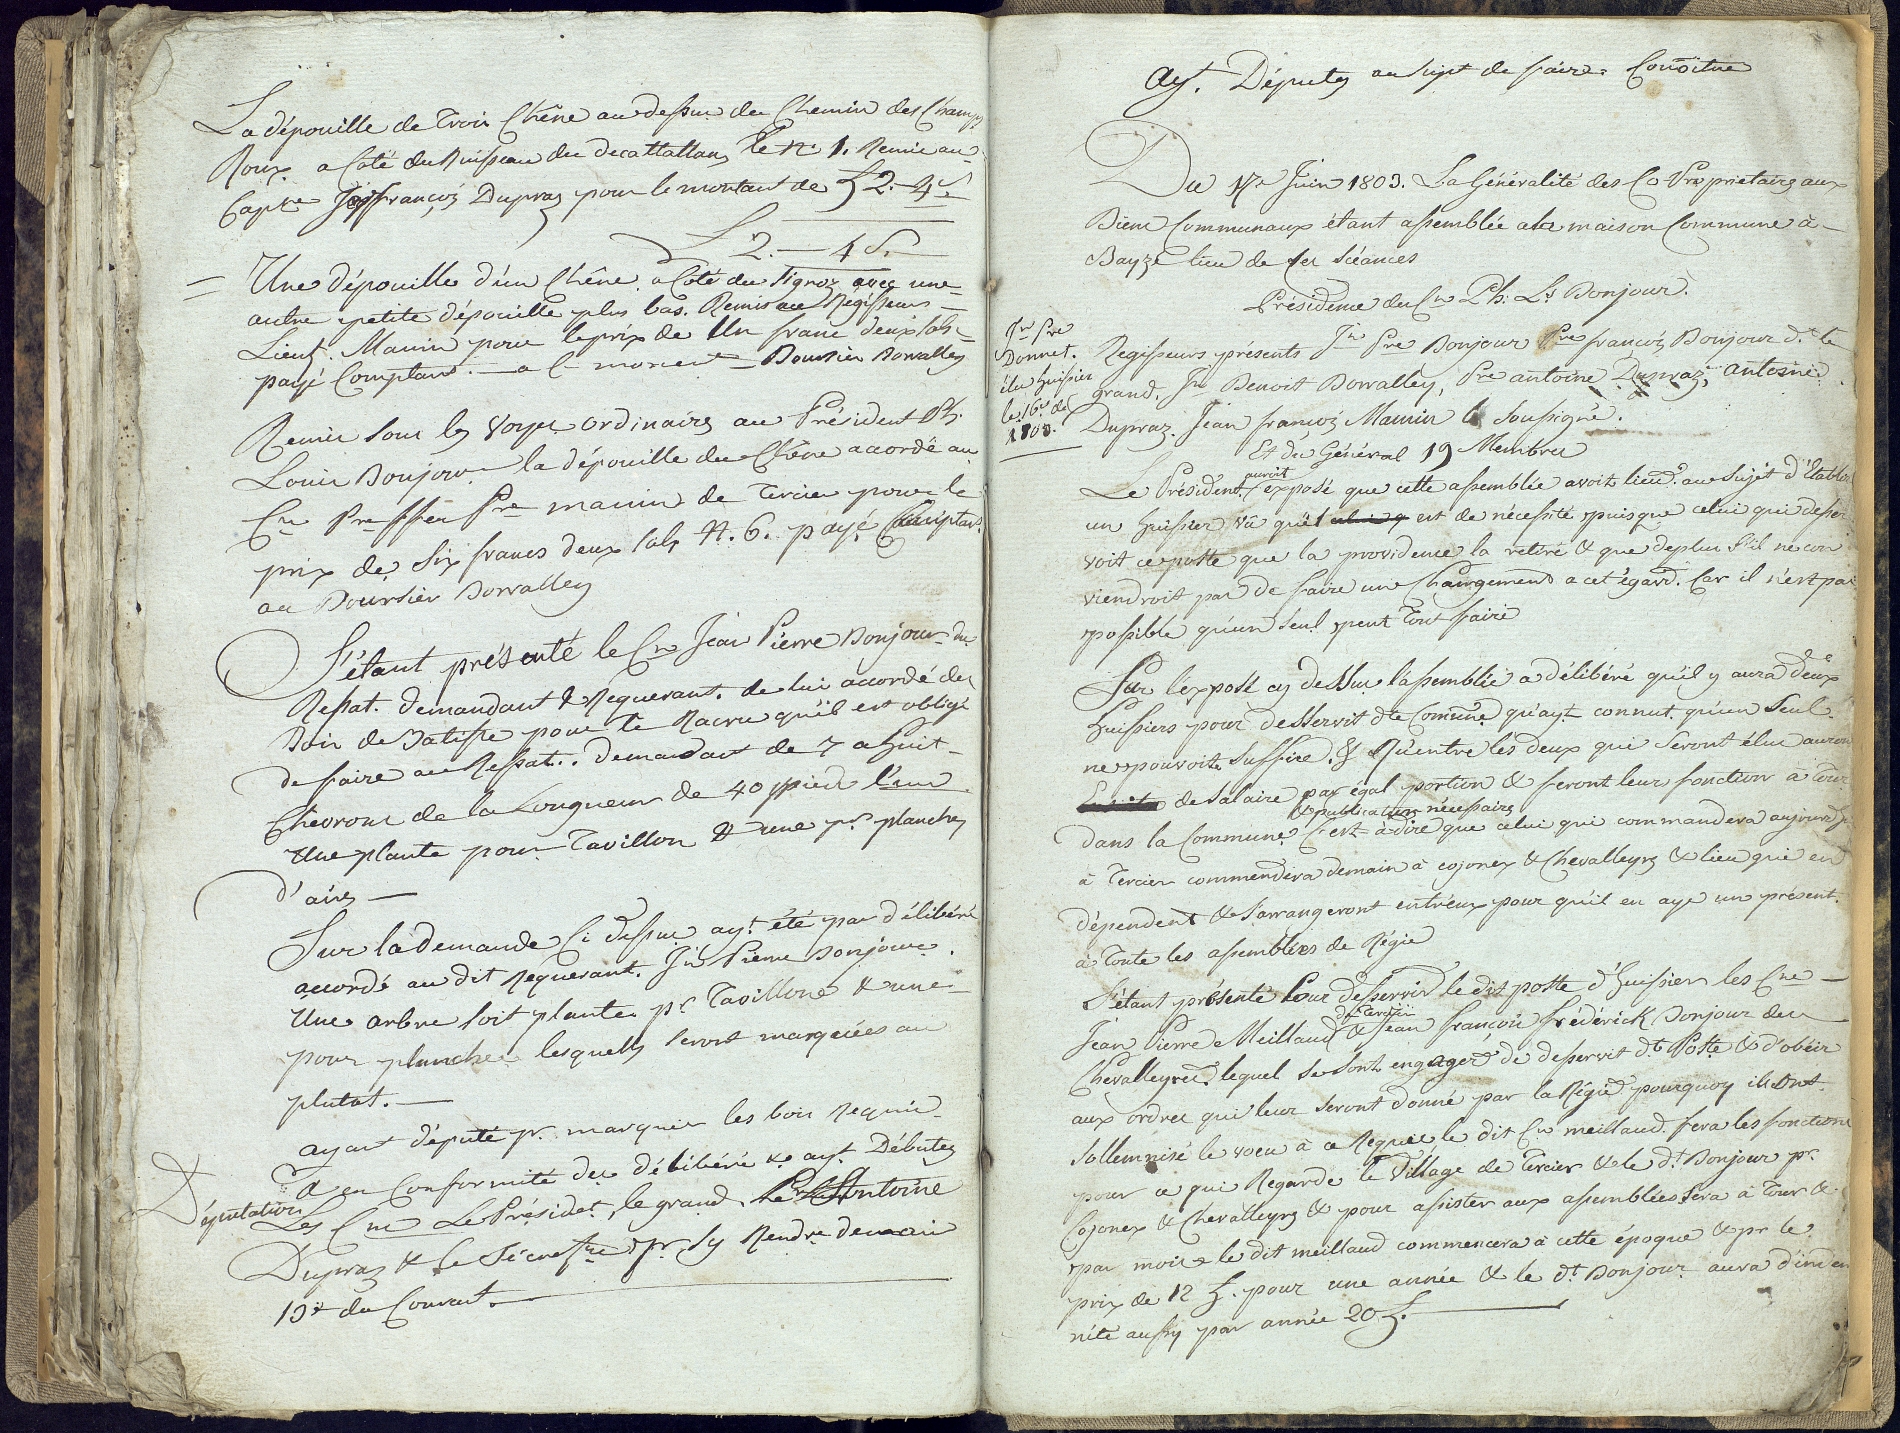 La dépouille de Trois Chêne au dessus du Chemin des Champs
Roux a Coté du Ruisseau du le N. 1. Remis au
Capne Jn françois Dupraz pour le montant de L 2.-4 S.
L 2. — 4 S.
= Une dépouille d'un Chêne a Coté du avec une
autre petite dépouille plus bas. Remis au Régisseur
Lieut. Mamin pour le prix de Un franc deux sols
payé Comptant. — a Boursier Dorvalley
Remis sous les voyes ordinaires au Président Ph.
Louis Bonjour la dépouille du Chêne accordé au
Cn Pre ffeu Pre mamin de Tercier pour le
prix de Six francs deux sols N. 6. payé Comptant
au Boursier Dorvalley
S'étant présenté le Cn Jean Pierre Bonjour du
Ressat. demandant & Requerant. de lui accordé du
Bois de Batisse pour le Racru qu'il est obligé
de faire au Ressat. demandant de 7 a huit
Chevrons de la Longueur de 40 pieds l'une
Une plante pour Tavillon & une pr planches
d'aires —
Sur la demande Ci dessus ayt été par délibéré
accordé au dit Requerant. Jn Pierre Bonjour.
Une arbre soit plante pr Tavillons & une
pour planches lesquels seront marquées au
plutot. —
ayant député pr. marquer les bois Requis
& en Conformité du délibéré ayt. Débutez
Députation
Les Cns Le Président, le grand, Pre Antoine
Dupraz & le Sécretre pr sy Rendre demain
13e du Courant.
Ayt. Députez au Sujet de faire Conoitre
Du 17e Juin 1803. La Généralité des Co Proprietaires aux
Biens Communaux étant assemblée a la maison Commune à
Bayze lieu de ses séances
Présidence du Cn Ph: Ls Bonjour.
Jn Pre
Donnet.
élu huissier
le 16e de
1808.
Regisseurs présents Jn Pre Bonjour Pre françois Bonjour dt le
grand. Jn Benoit Dorvalley, Pre antoine Dupraz, antoine
Dupraz. Jean françois Mamin le soussigné.
Et du Général 19 Membres
Le Président auroit exposé que cette assemblée avoit lieu au Sujet d'Etablir
un huissier vû qu'il est de nécessité puisque celui qui desser
voit ce poste que la providence la retiré & que deplus s'il ne con
viendroit pas de faire un Changement a cet égard. Car il n'est pas
possible qu'un seul peut Tout faire
Sur l'exposé cy dessus l'assemblée a délibéré qu'il y aura deux
huissiers pour desservit dte Comune qu'ayt connut. qu'un seul
ne pouvoit suffire. & Qu'entre les deux qui seront élus auront
de salaire par égal portion & feront leurs fonction à Tour
& publications nécessaires
dans la Commune C'est-à-dire que celui qui commandera aujourd'h
à Tercier commendera demain à cojonex & Chevalleyres & lieu qui en
dépendent & s'arrangeront entr'eux pour qu'il en aye un présent.
à Toute les assemblées de Régie
S'étant présenté Pour desservir le dit poste d'huissier les Cns
de Tercier
Jean Pierre Meilland & Jean françois frédérick Bonjour des
Chevalleyres lequel se sont engager de desservit dt Poste & d'obéir
aux ordres qui leur seront donné par la Régie pourquoy ils ont
sollemnisé le voeu à ce Requis le dit Cn meilland. fera les fonctions
pour ce qui Regarde le Village de Tercier & le dt Bonjour pr.
Cojonex & Chevalleyres & pour assister aux assemblées sera à Tour &
par mois le dit meilland commencera à cette époque & pr le
prix de 12 L. pour une année & le dt Bonjour aura d'indem
nité aussy par année 20 L.